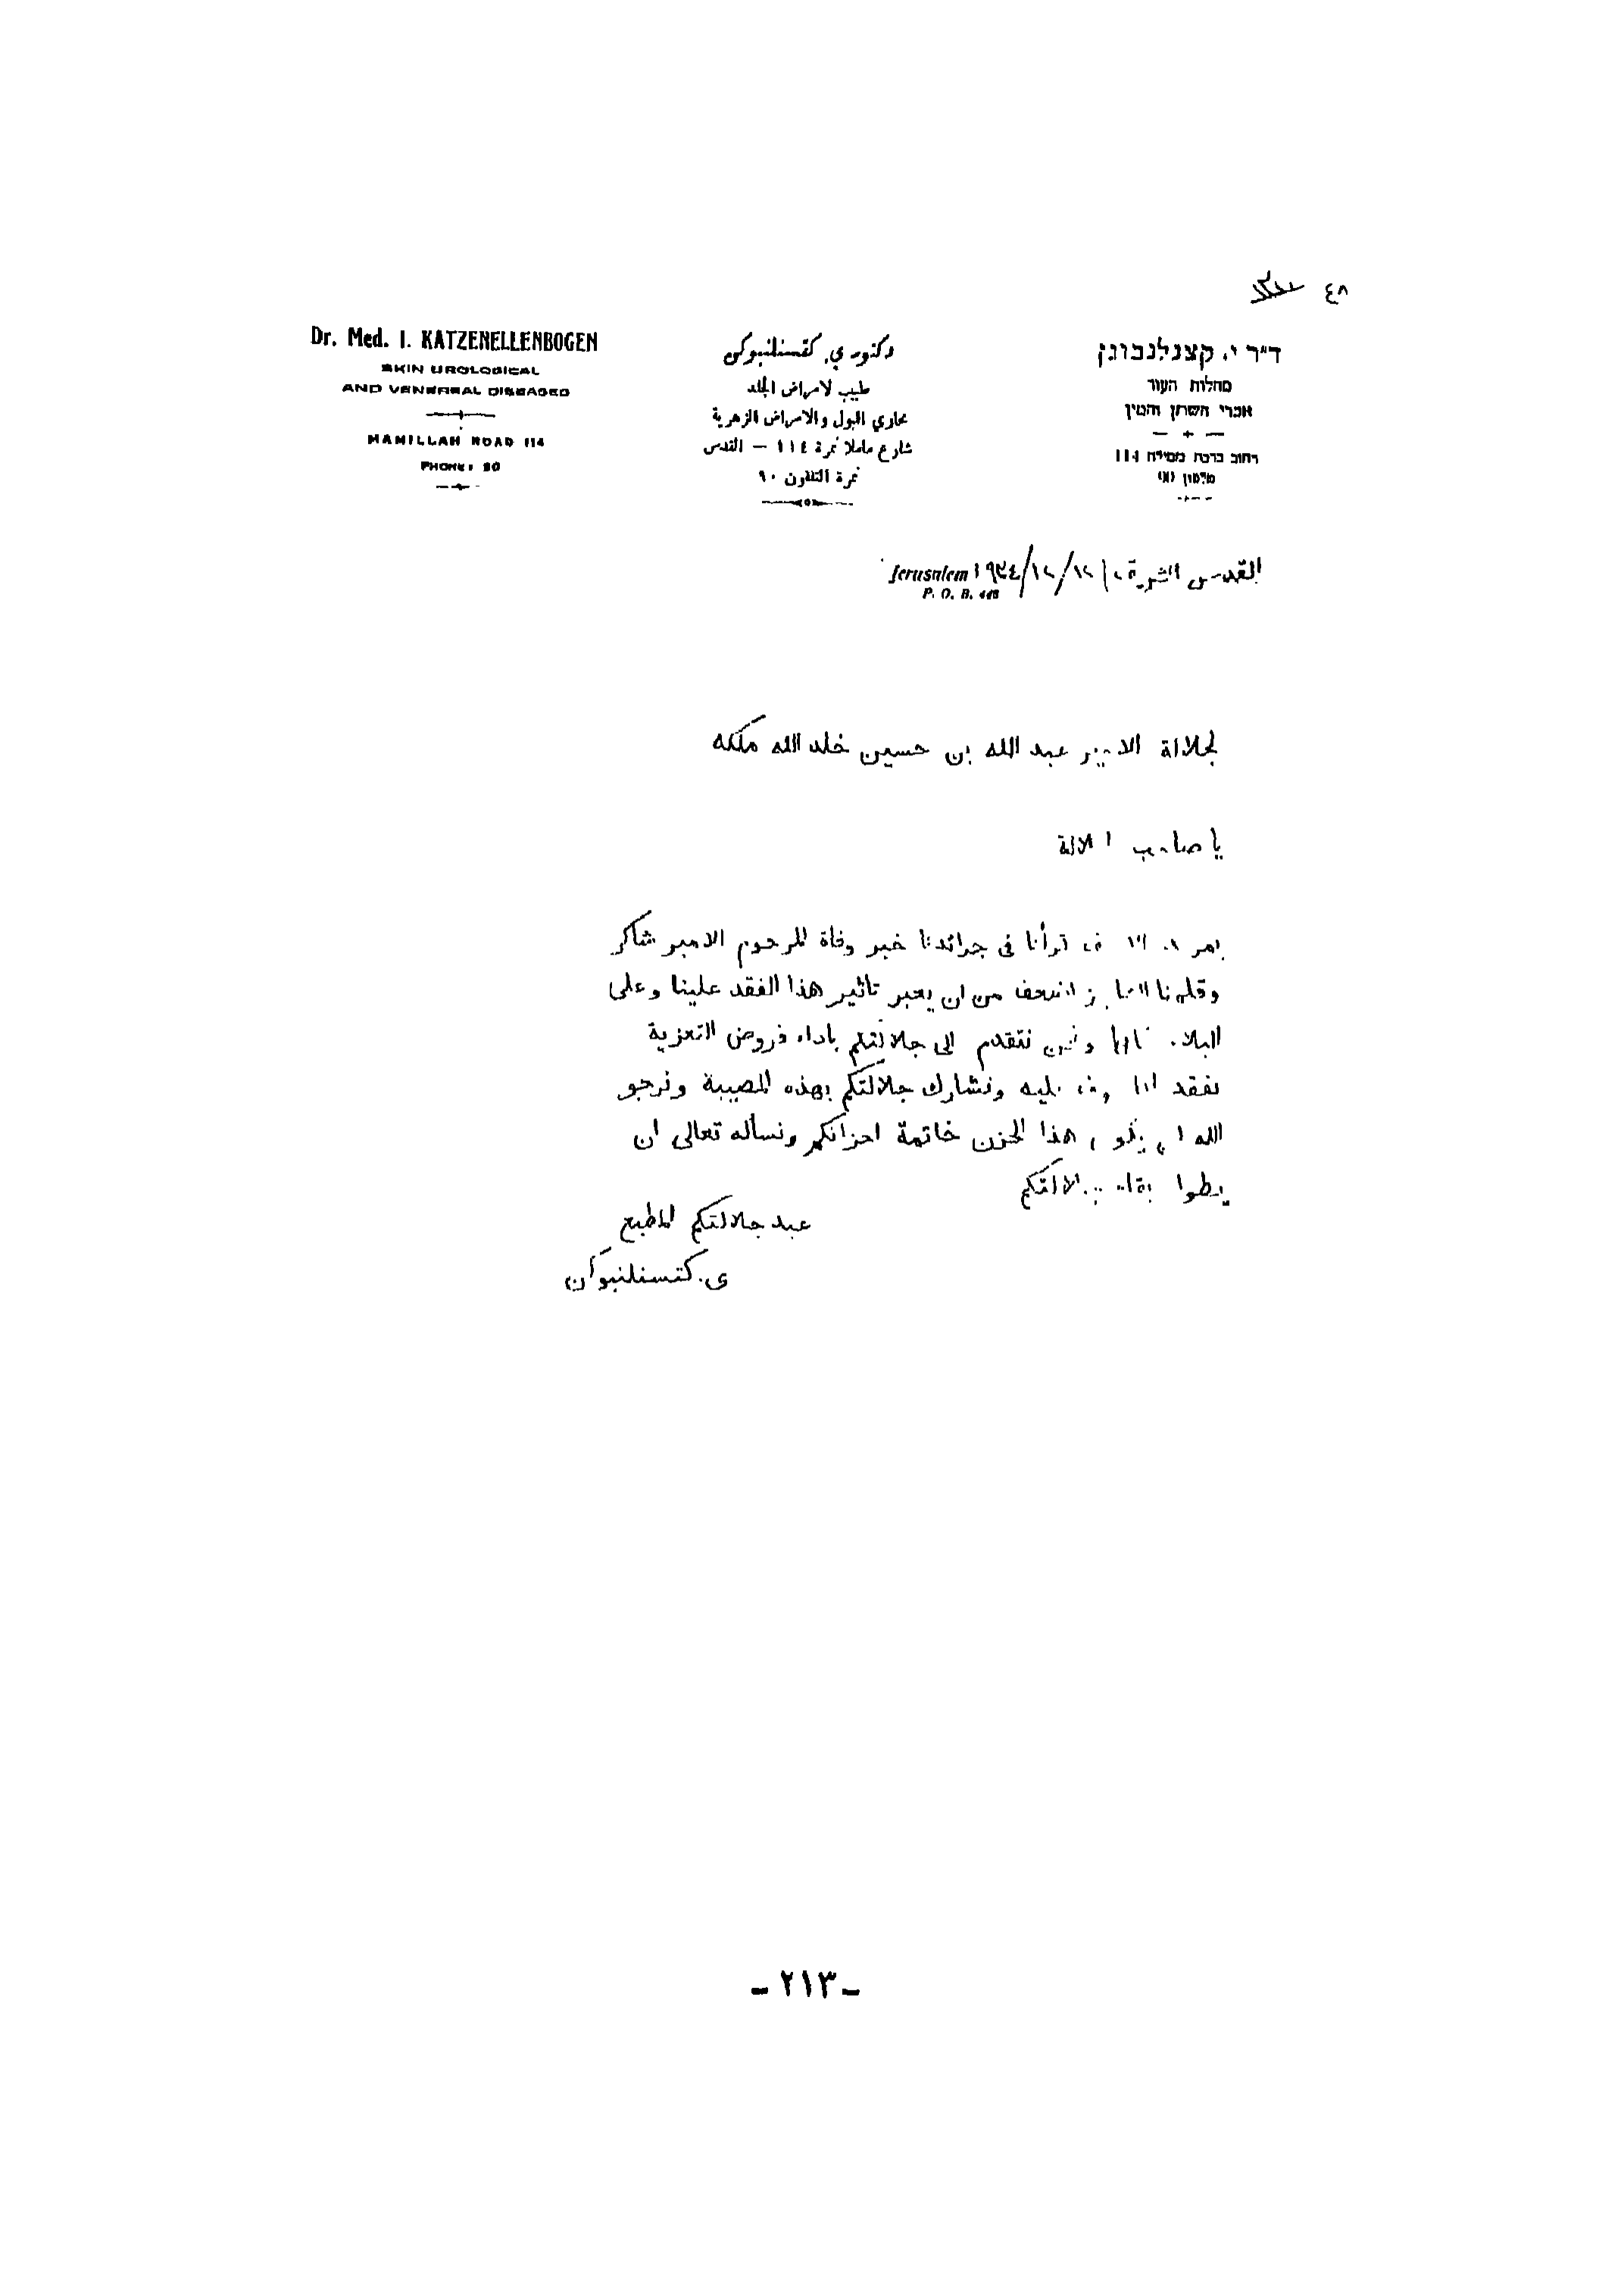 ٤٨
Dr. Med. I. KATZENELLENBOGEN
SKIN UROLOGICAL
AND VENEREAL DISEASES
MAMILLAH ROAD 114
PHONE: 90
دكتور ي. كتسنلنبوكن
طبيب لامراض الجلد
مجاري البول والامراض الزهرية
شارع ماملا نمرة ١١٤ — القدس
نمرة التلفون ٩٠
ד״ר י. קצנלנבוגן
מחלות העור
אברי השתן והמין
רחוב ברכת ממילה 114
טלפון 90
القدس الشريف Jerusalem ١٩٣٤/١٢/١٢
P. O. B.
لجلالة الامير عبد الله بن حسين خلد الله ملكه
يا صاحب
قرأنا في جرائدنا خبر وفاة المرحوم الامير شاكر
وقلمنا اضعف من ان يعبر تاثير هذا الفقد علينا وعلى
البلاد ونحن نتقدم الى جلالتكم باداء فروض التعزية
بفقد ونشارك جلالتكم بهذه المصيبة ونرجو
الله هذا الحزن خاتمة احزانكم ونسأله تعالى ان
عبد جلالتكم المطيع
ي. كتسنلنبوكن
- ٢١٣ -